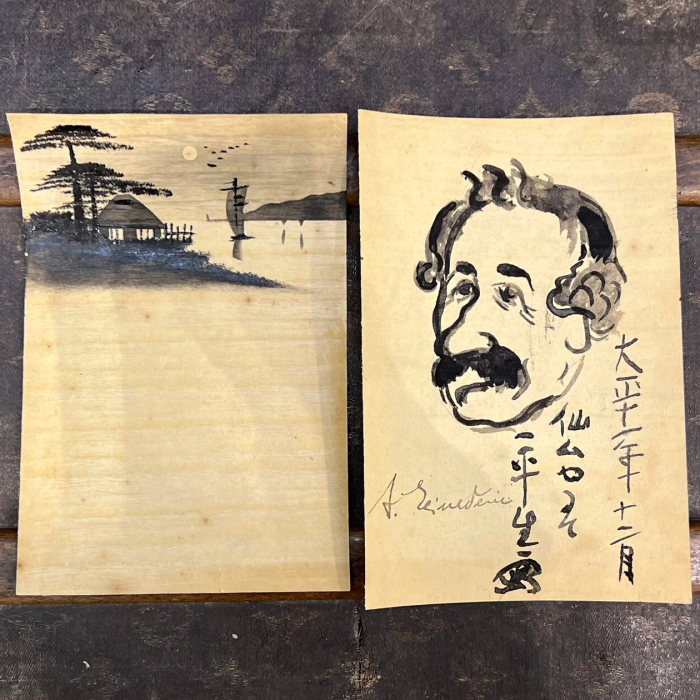 大正十一年十二月
仙台にて
一平生
A. Einstein